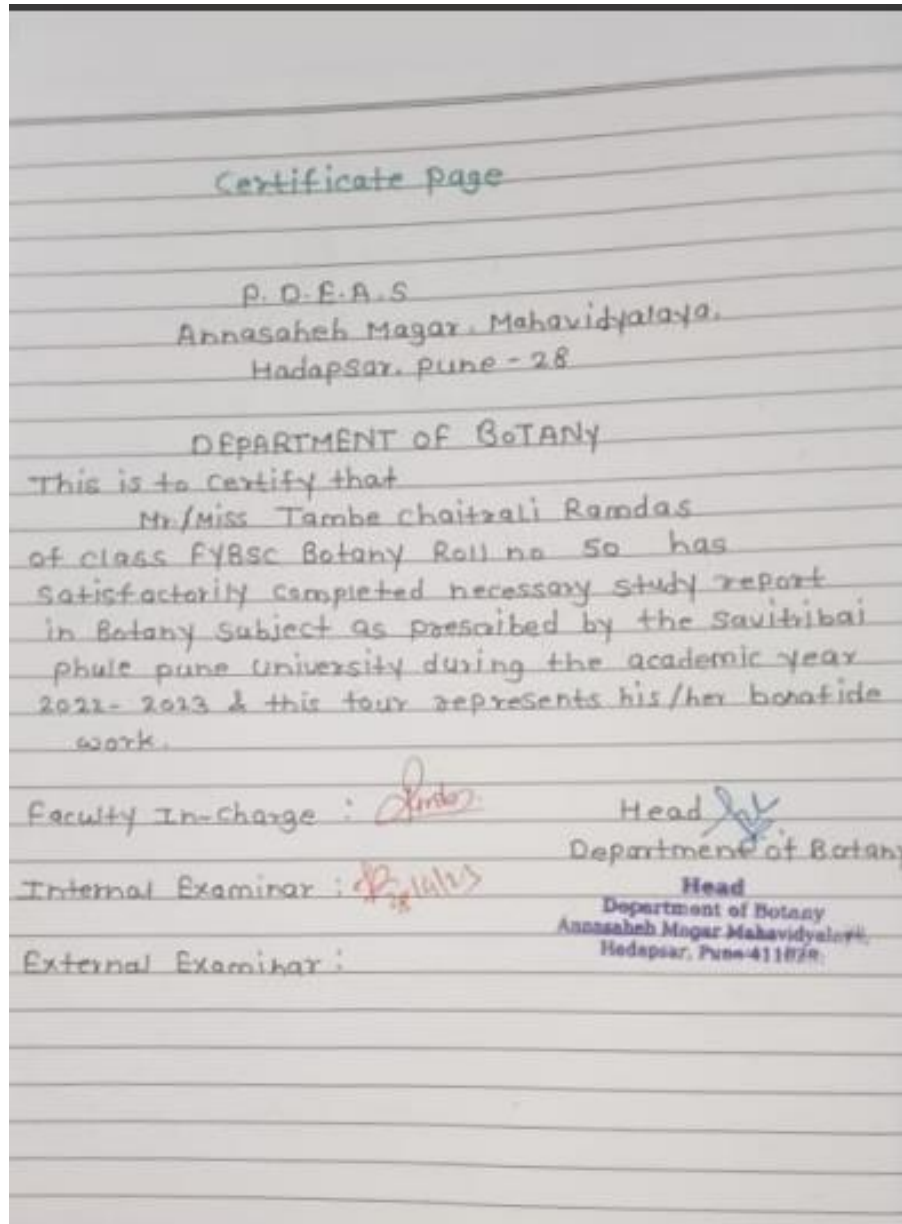 Certificate page
P.D.E.A.S
Annasaheb Magar. Mahavidyalaya.
Hadapsar. pune - 28
DEPARTMENT OF BOTANY
This is to certify that
Mr./Miss Tambe chaitrali Ramdas
of class FYBSC Botany Roll no 50 has
satisfactorily completed necessary study report
in Botany subject as prescribed by the savitribai
phule pune university during the academic year
2022- 2023 & this tour represents his/her bonafide
work.
Faculty In-charge :
Head
Department of Botany
Internal Examinar :
Head
Department of Botany
Annasaheb Magar Mahavidyalaya,
Hadapsar, Pune-411028.
External Examinar :